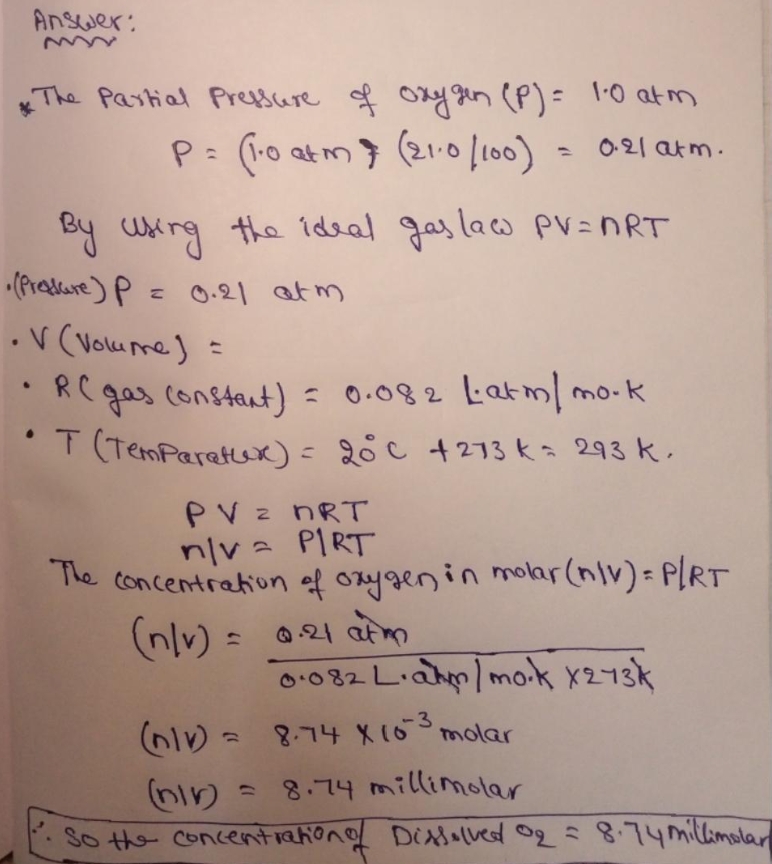 Answer:
* The Partial Pressure of oxygen (P) = 1.0 atm
P = (1.0 atm) (21.0/100) = 0.21 atm.
By using the ideal gas law PV = nRT
• (Pressure) P = 0.21 atm
• V (Volume) =
• R (gas constant) = 0.082 L.atm/mo.k
• T (Temparature) = 20°C + 273 k = 293 k.
PV = nRT
n/v = P/RT
The concentration of oxygen in molar (n/v) = P/RT
(n/v) = 0.21 atm
0.082 L.atm/mo.k x 273k
(n/v) = 8.74 x 10⁻³ molar
(n/v) = 8.74 millimolar
∴ So the concentration of Dissolved O₂ = 8.74 millimolar